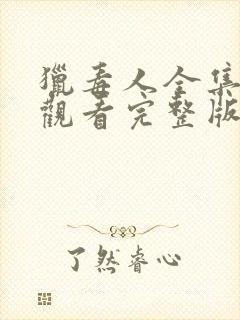 獵毒人全集
觀看完整版
了然睿心